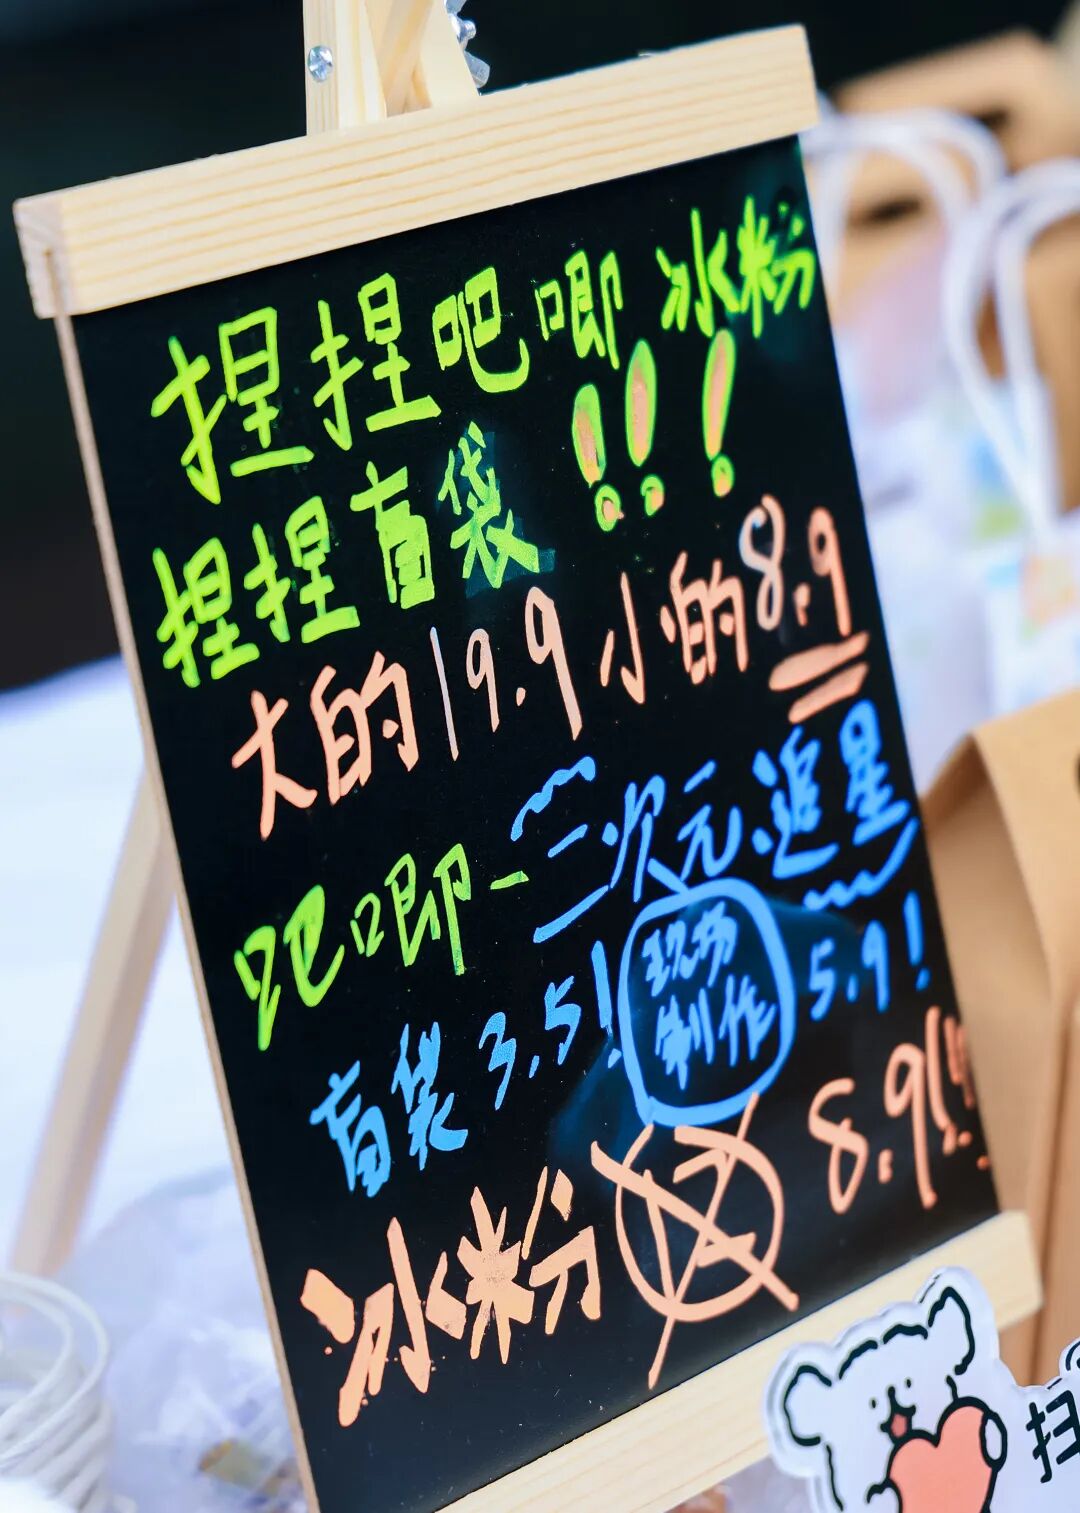 捏捏吧唧冰粉
捏捏盲袋!!!
大的19.9小的8.9
吧唧-二次元追星
盲袋3.5!
现场
制作
5.9!
冰粉
8.9!!!
扫